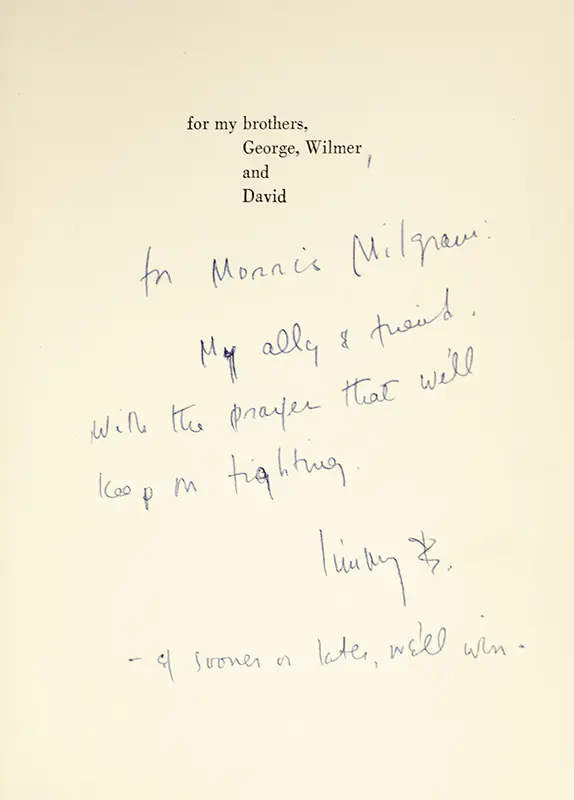 for my brothers,
George, Wilmer
and
David
for Morris Milgram:
My ally & friend.
With the prayer that we'll
keep on fighting.
Jimmy B.
- & sooner or later, we'll win -